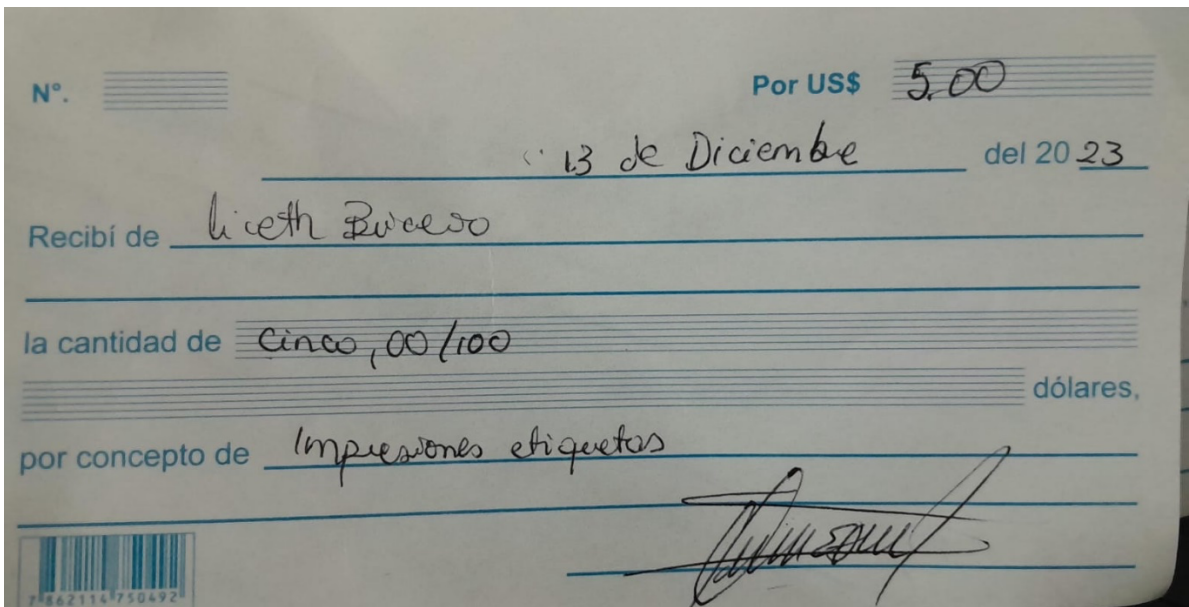 N°. Por US$ 5.00
13 de Diciembre del 2023
Recibí de Liceth
la cantidad de Cinco, 00/100
dólares,
por concepto de Impresiones etiquetas
7 862114 750492